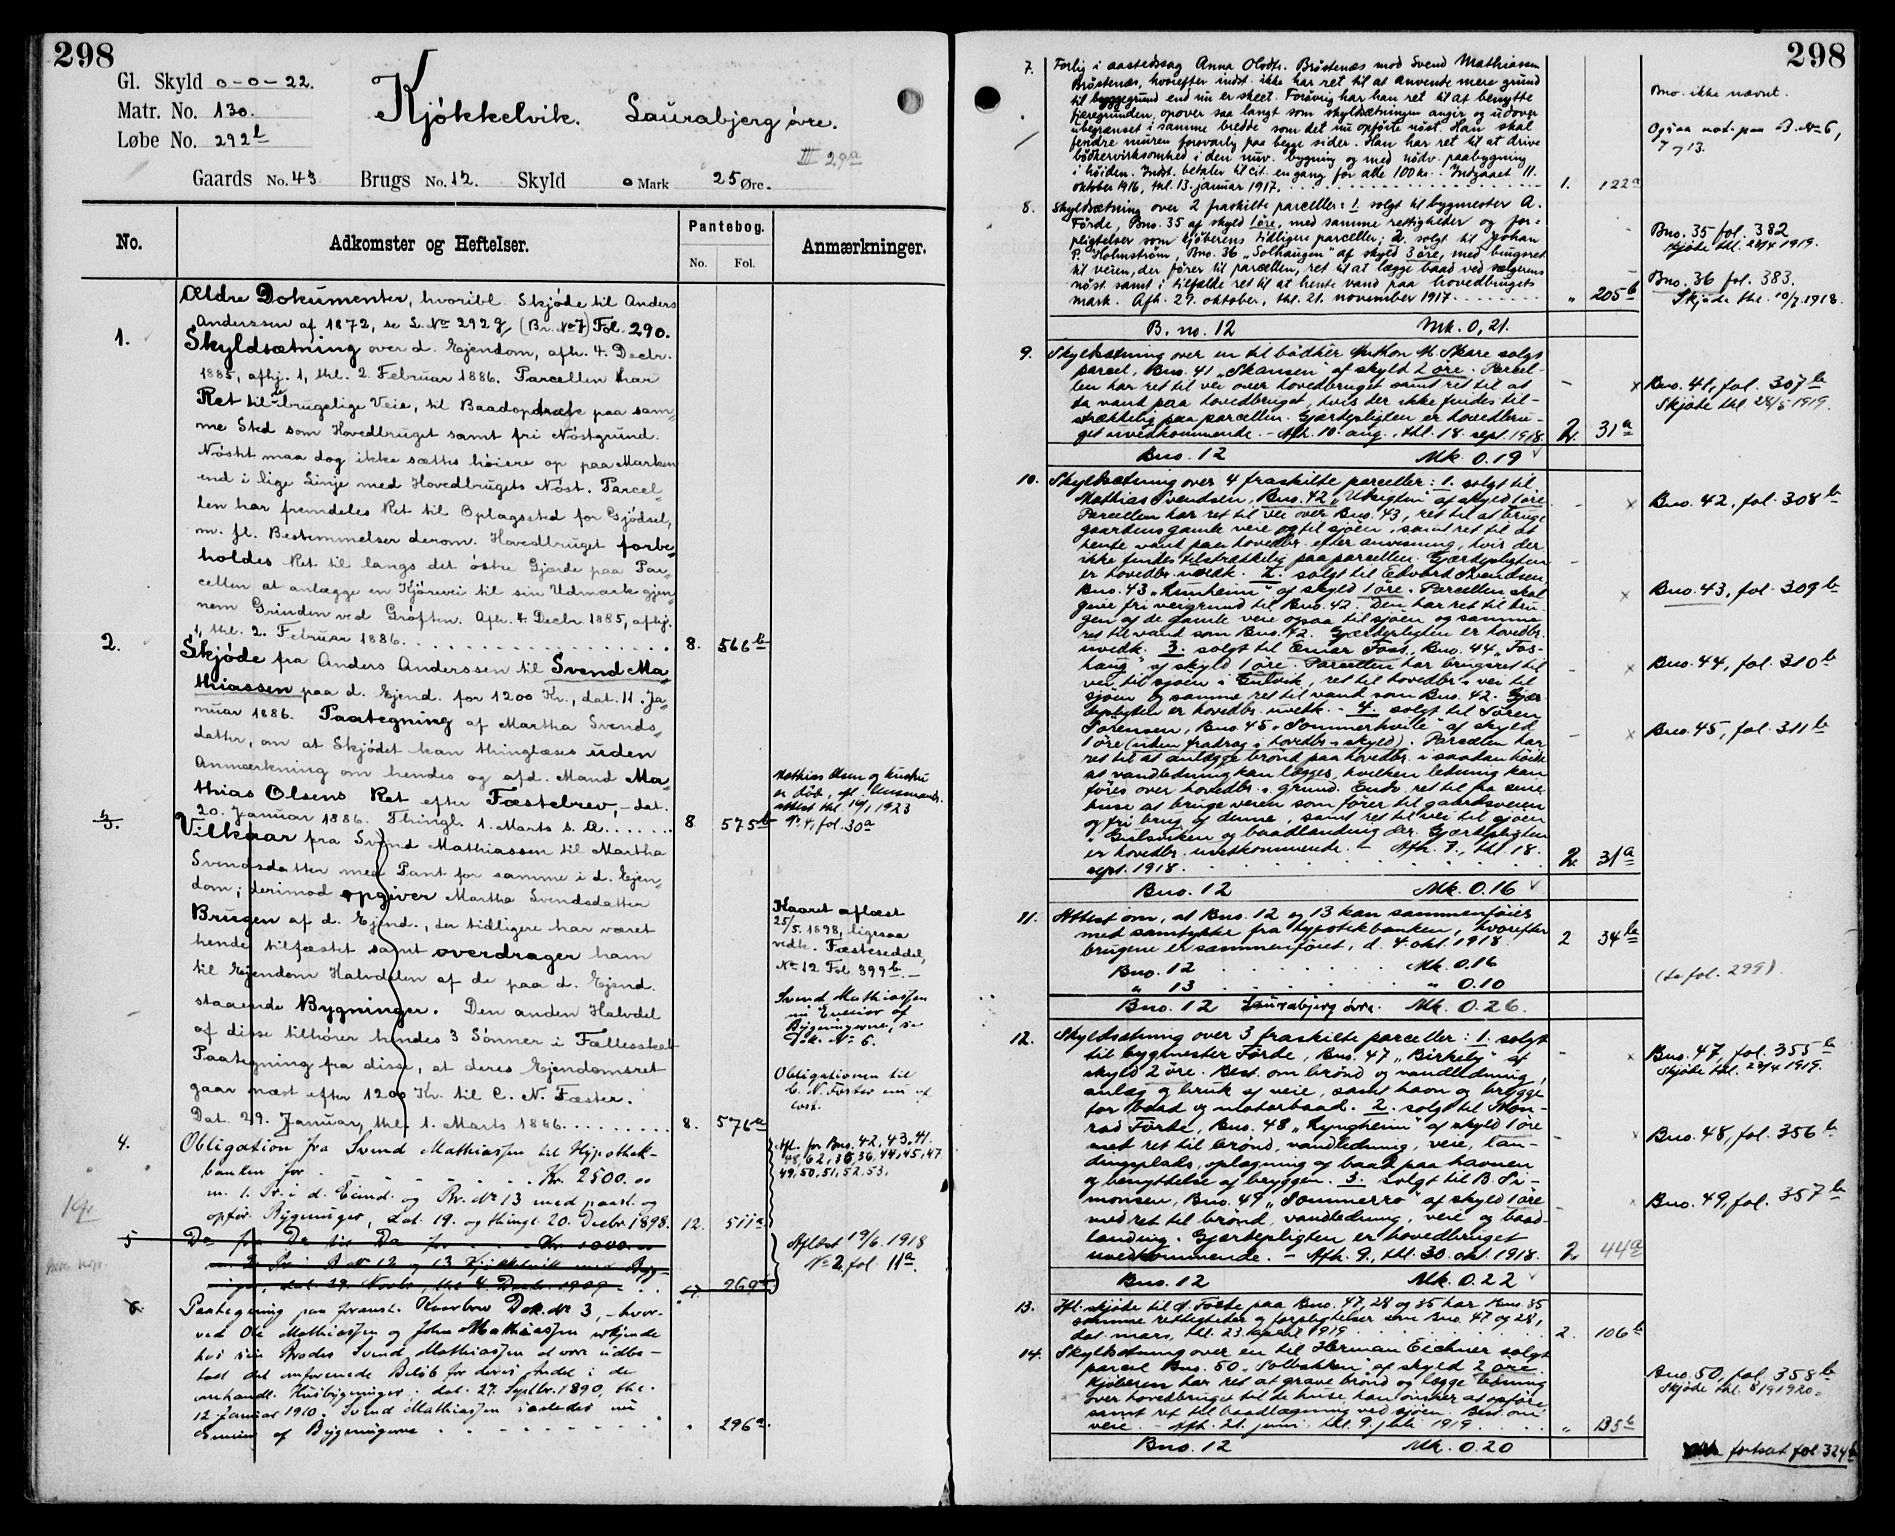 298
Gl. Skyld 0-0-22.
Matr. No. 130.
Løbe No. 292 l
Kjökkelvik. Laurabjerg øvre.
III 29a
Gaards No. 43 Brugs No. 12. Skyld 0 Mark 25 Øre.
No. Adkomster og Heftelser. Pantebog. No. Fol. Anmærkninger.
Ældre Dokumenter, hvoribl. Skjöde til Anders
Anderssen af 1872, se L. No 292 g (Br. No 7) Fol. 290.
1. Skyldsætning over d. Ejendom, afh. 4. Decbr.
1885, afhj. 1, thl. 2. Februar 1886. Parcellen har
Ret til brugelige Veie, til Baadopdræt paa sam-
me Sted som Hovedbruget samt fri Nöstgrund.
Nöstet maa dog ikke sættes höiere op paa Marken
end i lige Linje med Hovedbrugets Nöst. Parcel-
len har fremdeles Ret til Oplagssted for Gjödsel,
m. fl. Bestemmelser derom. Hovedbruget forbe-
holdes Ret til langs det östre Gjerde paa Par-
cellen at anlægge en Kjörevei til sin Udmark gjen-
nem Grinden ved Gröften. Afh. 4. Decbr 1885, afhj.
1, thl. 2. Februar 1886. 8. 566b
2. Skjöde fra Anders Anderssen til Svend Ma-
thiassen paa d. Ejend. for 1200 Kr., dat. 11. Ja-
nuar 1886. Paategning af Martha Svends-
datter, om at Skjödet kan thinglæses uden
Anmærkning om hendes og afd. Mand Ma-
thias Olsens Ret efter Fæstebrev, - dat.
20. Januar 1886. Thingl. 1. Marts s. A. 8 575b
Mathias Olsen og hustru
er död, afl.
attest thl. 16/1 1923
No 4, fol. 30a
3. Vilkaar fra Svend Mathiassen til Martha
Svendsdatter med Pant for samme i d. Ejen-
dom; derimod opgiver Martha Svendsdatter
Brugen af d. Ejend., der tidligere har været
hende tilfæstet samt overdrager ham
til Ejendom Halvdelen af de paa d. Ejend.
staaende Bygninger. Den anden Halvdel
af disse tilhører hendes 3 Sönner i Fællesskab
Paategning fra disse, at deres Ejendomsret
gaar næst efter 1200 Kr. til C. N. Fæster.
Dat. 29. Januar, thl. 1. Marts 1886. 8. 576a
Kaaret aflæst
25/5. 1898, ligesaa
vedk. Fæsteseddel,
No 12 Fol. 399b. -
Svend Mathiassen
nu Eneeier af
Bygningerne, se
Dok. No 6.
Obligationen til
C. N. Fæster nu af
læst.
4. Obligation fra Svend Mathiassen til Hypothek-
banken for Kr. 2500.00
m. 1. Pr. i d. Eiend. og Br. No 13 med paast. og
opför. Bygninger, dat. 19. og thingl. 20. Decbr 1898. 12. 511a
Afl. for Bno. 42, 43, 41.
48, 62, 35, 36, 44, 45, 47
49, 50, 51, 52, 53.
5 Do fra Do til Do for Kr. 1000.00
m. 2. Pr. i B. No 12 og 13 Kjökkelvik med Byg-
inger, dat. 29. Novbr, thl. 4. Decbr. 1909 17. 269a
Aflæst 19/6. 1918
No 2, fol. 11a.
6. Paategning paa foranst. Kaarbrev Dok. No 3, - hvor-
ved Ole Mathiassen og John Mathiassen erkjende
hos sin Broder Svend Mathiassen at være udbe-
talt det omforenede Belöb for deres Andel i de
omhandl. Husbygninger. dat. 27. Septbr. 1890, thl.
12. Januar 1910. Svend Mathiassen saaledes nu
Eneeier af Bygningerne " 296a.
298
7. Forlig i aastedssag Anna Olsdtr. Bröstenæs mod Svend Mathiassen
Bröstenæs, hvorefter indst. ikke har ret til at anvende mere grund
til byggegrund end nu er skeet. Forövrig har han ret til at benytte
fjæregrunden, opover saa langt som skyldsætningen angir og udover
ubegrænset i samme bredde som det nu opförte nöst. Han skal
fendre muren forsvarlig paa begge sider. Han har ret til at drive
bödkervirksomhed i den nuv. bygning og med nödv. paabygning
i höiden. Indst. betaler til cit. en gang for alle 100 kr. Indgaaet 11.
oktober 1916, thl. 13. januar 1917. 1. 122a
Bno. ikke nævnt.
Ogsaa not. paa B. No 6,
7 og 13.
8. Skyldsætning over 2 fraskilte parceller: 1. solgt til bygmester A.
Förde, Bno. 35 af skyld 1 öre, med samme rettigheder og for-
pligtelser som kjöberens tidligere parceller; 2. solgt til Johan
P. Holmström, Bno. 36 "Solhaugen" af skyld 3 öre, med brugsret
til veien, der förer til parcellen, ret til at lægge baad ved sælgerens
nöst samt i tilfælde ret til at hente vand paa hovedbrugets
mark. Afh. 29. oktober, thl. 21. november 1917. " 205b
Bno. 35 fol. 382
Skjöte thl. 23/4 1919.
Bno. 36 fol. 383.
Skjöde thl. 10/7 1918.
B. no. 12 Mk. 0,21.
9. Skyldsætning over en til bödker Mathon M. Skare solgt
parcel, Bno. 41 "Skansen" af skyld 2 öre. Parcel-
len har ret til vei over hovedbruget samt ret til at
ta vand paa hovedbruget, hvis der ikke findes til-
strækkelig paa parcellen. Gjærdepligten er hovedbru-
get uvedkommende. - Afh. 10. aug., thl. 18. sept. 1918. 2. 31a
x Bno. 41, fol. 307b
Skjöte thl. 28/5 1919.
Bno. 12 Mk 0.19
10. Skyldsætning over 4 fraskilte parceller: 1. solgt til
Mathias Svendsen, Bno. 42 "Utsigten" af skyld 1 öre.
Parcellen har ret til vei over Bno. 43, ret til at bruge
gaardens gamle veie og til sjöen, samt ret til at
hente vand paa hovedbr. efter anvisning, hvis der
ikke findes tilstrækkelig paa parcellen. Gjærdepligten
er hovedbr. uvedk. 2. solgt til Edvard Svendsen,
Bno. 43 "Runheim" af skyld 1 öre. Parcellen skal
give fri veigrund til Bno. 42. Den har ret til bru-
gen af de gamle veie ogsaa til sjöen og samme
ret til vand som Bno. 42. Gjærdepligten er hovedbr.
uvedk. 3. solgt til Einar Foss, Bno. 44 "Fos-
haug" af skyld 1 öre. Parcellen har brugsret til
vei til sjöen i Gulvik, ret til hovedbr.s vei til
sjöen og samme ret til vand som Bno. 42. Gjær-
depligten er hovedbr. uvedk. - 4. solgt til Sören
Sörensen, Bno. 45 "Sommerhvile" af skyld
1 öre (uden fradrag i hovedbr.s skyld). Parcellen har
ret til at anlægge brönd paa hovedbr. i saadan höide
at vandledning kan lægges, hvilken ledning kan
föres over hovedbr.s grund. Endv. ret til fra sine
huse at bruge veien som förer til gaardsveien
og fri brug af denne, samt ret til vei til sjöen
i Gulsviken og baadlanding der. Gjærdepligten
er hovedbr. uvedkommende. - Afh. 7., thl. 18.
sept. 1918. 2. 31a
x Bno. 42, fol. 308b
x Bno. 43, fol. 309b
x Bno. 44, fol. 310b
x Bno. 45, fol. 311b
Bno. 12 Mk. 0.16
11. Attest om, at Bno. 12 og 13 kan sammenföies
med samtykke fra hypotekbanken, hvorefter
brugene er sammenföiet, d. 4 okt. 1918. 2 34b
Bno. 12 Mk. 0.16
" 13 " 0.10
(se fol. 299).
Bno. 12 Laurabjerg övre. Mk. 0.26.
12. Skyldsætning over 3 fraskilte parceller: 1. solgt
til bygmester Förde, Bno. 47 "Birkely" af
skyld 2 öre. Best. om brönd og vandledning,
anlæg og bruk af veie, samt havn og brygge
for baad og motorbaad. 2. solgt til Kon-
rad Förde, Bno. 48 "Lyngheim" af skyld 1 öre
med ret til brönd, vandledning, veie, lan-
dingsplads, oplægning af baad paa havnen
og benyttelse af bryggen. 3. solgt til B. Si-
monsen, Bno. 49 "Sommerro" af skyld 1 öre
med ret til brönd, vandledning, veie og baad-
landing. Gjærdepligten er hovedbruget
uvedkommende. - Afh. 9., thl. 30. okt. 1918. 2. 44a
x Bno. 47, fol. 355b
Skjöte thl. 23/4 1919.
Bno. 48, fol. 356b.
Bno. 49, fol. 357b
Bno. 12 Mk. 0.22
13. Ifl. skjöte til A. Förde paa Bno. 47, 28 og 35 har Bno. 35
samme rettigheder og forpligtelser som Bno. 47 og 28,
dat. mars, thl. 23. april 1919 2. 106b
14. Skyldsætning over en til Herman Eichner solgt
parcel Bno. 50, "Solbakken" af skyld 2 öre.
Kjöberen har ret at grave brönd og lægge ledning
over hovedbruget til de huse han önsker at opföre
samt ret til baadlægning ved sjöen. Best. om
veie. - Afh. 21. juni, thl. 9. juli 1919 " 135b
Bno. 50, fol. 358b
Skjöte thl. 8/1 1920.
Bno. 12 Mk. 0.20
fortsat fol 324b